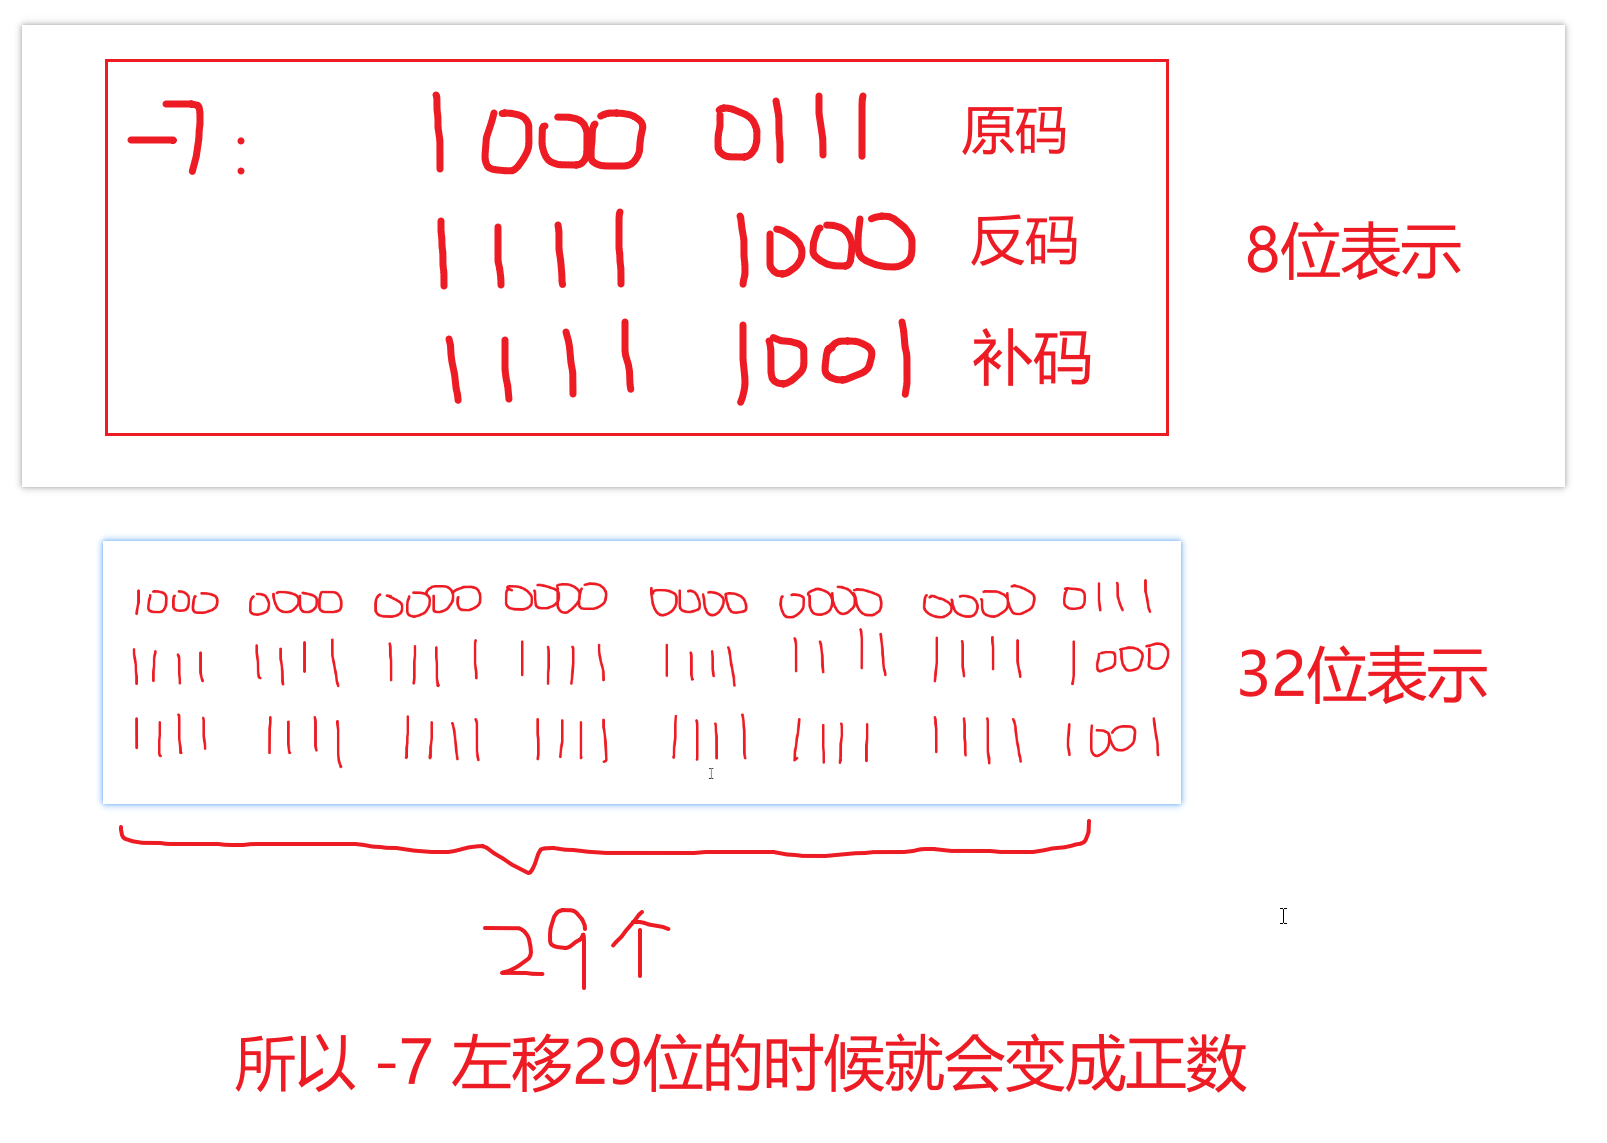 -7: 1000 0111 原码
1111 1000 反码
8位表示
1111 1001 补码
1000 0000 0000 0000 0000 0000 0000 0111
1111 1111 1111 1111 1111 1111 1111 1000
32位表示
1111 1111 1111 1111 1111 1111 1111 1001
29个
所以 -7 左移29位的时候就会变成正数